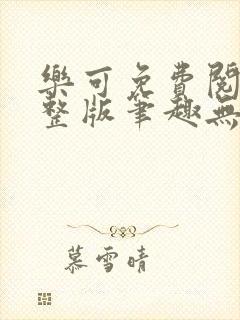 樂可免費閱
整版筆趣無
慕雪晴